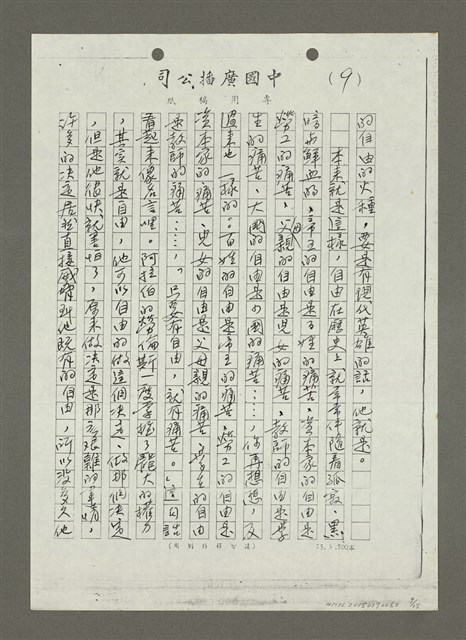 中國廣播公司
專用稿紙
(9)
的自由的火種，要是有現代英雄的話，他就是。
本來就是這樣，自由在歷史上就常常伴隨着孤寂、黑
暗和鮮血的，帝王的自由是子姓的痛苦，資本家的自由是
勞工的痛苦，父母親的自由是兒女的痛苦，教師的自由是學
生的痛苦、大國的自由是小國的痛苦……，你再想想，反
過來也一樣的。百姓的自由是帝王的痛苦，勞工的自由是
資本家的痛苦，兒女的自由是父母親的痛苦，學生的自由
是教師的痛苦……，「只要有自由，就有痛苦。」這句話
看起來像名言哩。阿拉伯的勞倫斯一度掌握了龐大的權力
，其實就是自由，他可以自由的做這個決定、做那個決定
，但是他很快就害怕了，原來做決定是那麼艱難的事情，
許多的決定居然直接威脅到他既有的自由，所以沒多久他